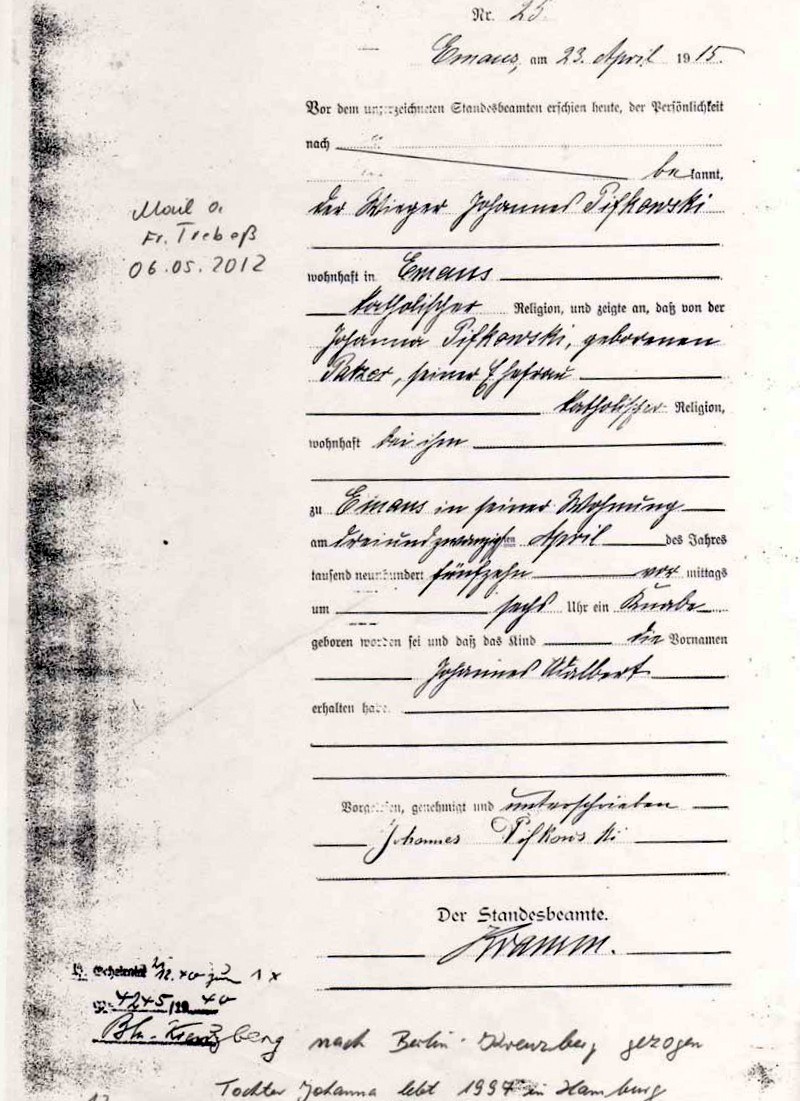 Nr. 25
Emaus, am 23. April 1915.
Vor dem unterzeichneten Standesbeamten erschien heute, der Persönlichkeit
nach
be kannt,
der Wieger Johannes Pifkowski
Mail a.
Fr. Treboß
06.05.2012
wohnhaft in Emaus
katholischer Religion, und zeigte an, daß von der
Johanna Pifkowski, geborenen
Patzer, seiner Ehefrau
katholischer Religion,
wohnhaft bei ihm
zu Emaus in seiner Wohnung
am dreiundzwanzigsten April des Jahres
tausend neunhundert fünfzehn vor mittags
um sechs Uhr ein Knabe
geboren worden sei und daß das Kind die Vornamen
Johannes Adalbert
erhalten habe.
Vorgelesen, genehmigt und unterschrieben
Johannes Pifkowski
Der Standesbeamte.
Kramm.
1x
4245/1940
Bln-Kreuzberg nach Berlin-Kreuzberg gezogen
Tochter Johanna lebt 1994 in Hamburg